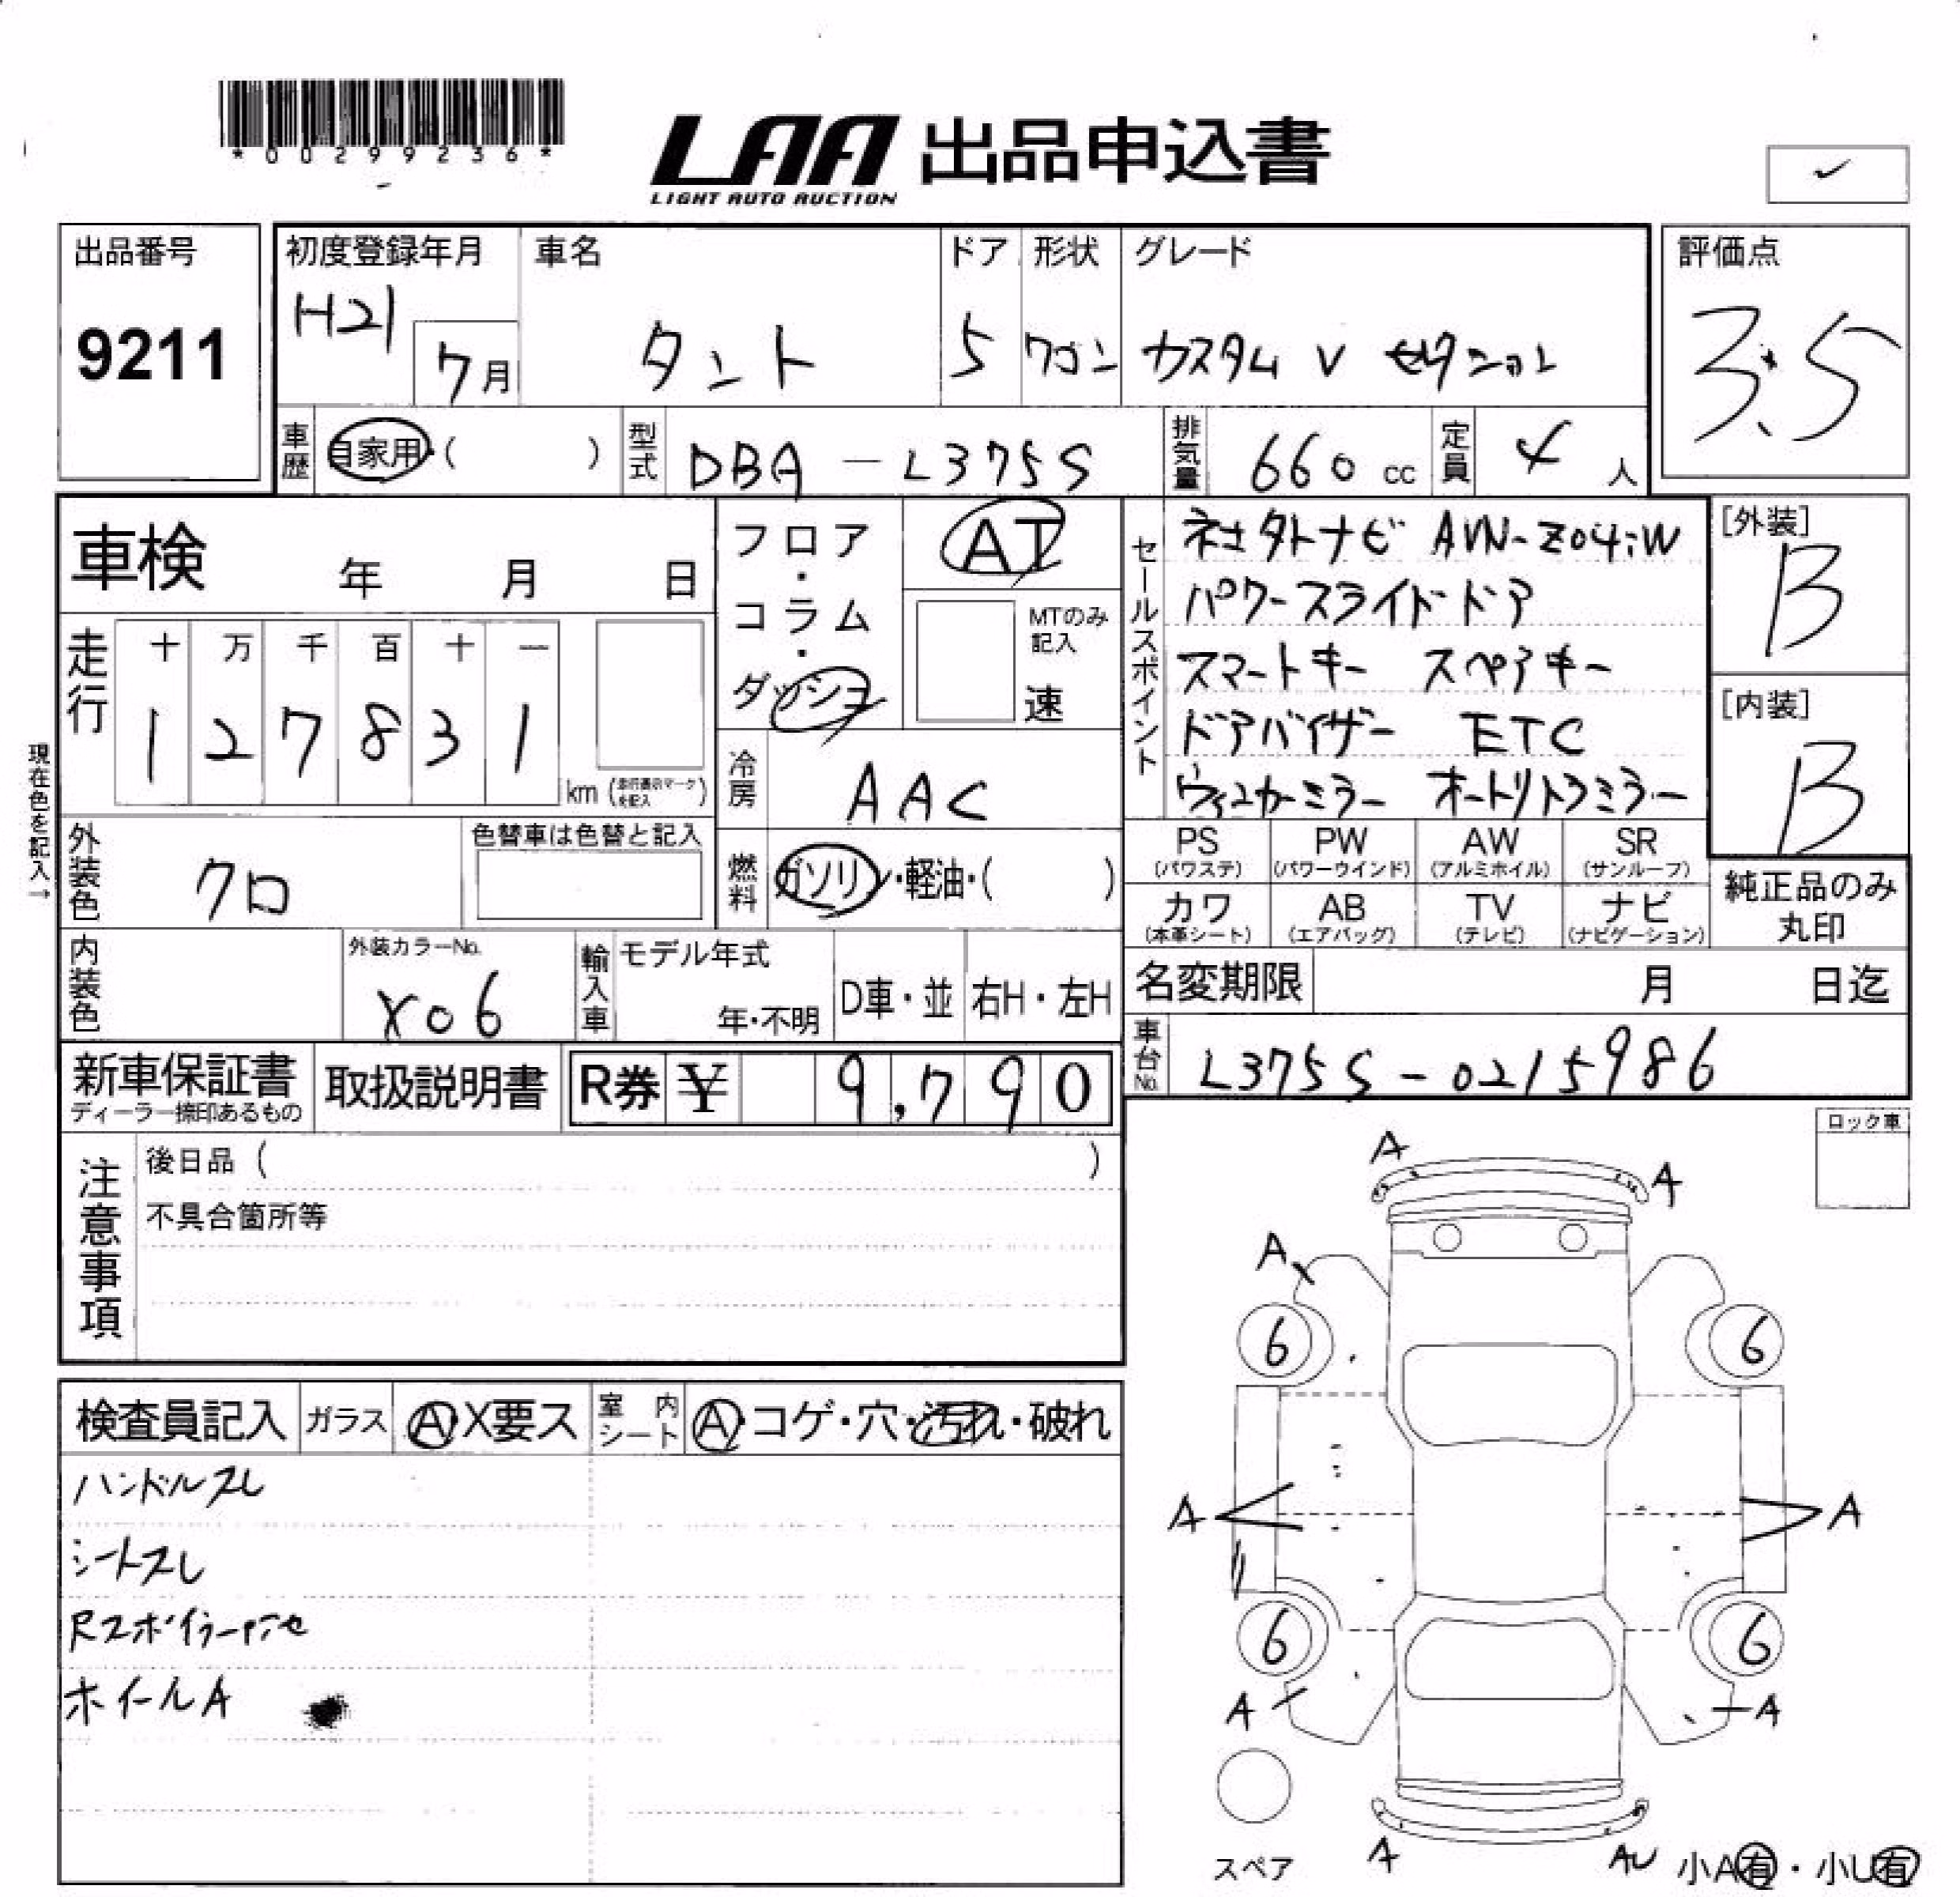 *00299236*
LAA 出品申込書
LIGHT AUTO AUCTION
出品番号 初度登録年月 車名 ドア 形状 グレード 評価点
9211 H21 7月 タント 5 ワゴン カスタム V セレクション 3.5
車歴 自家用・( ) 型式 DBA-L375S 排気量 660 cc 定員 4 人
車検 年 月 日
フロア・コラム・ダッシュ
AT
MTのみ記入
速
セールスポイント
社外ナビ AVN-Z04iW
パワースライドドア
スマートキー スペアキー
ドアバイザー ETC
ウィンカーミラー オートリトラミラー
[外装]
B
[内装]
B
走行 十 万 千 百 十 一
1 2 7 8 3 1
km (走行表示マークを記入)
現在色を記入→
冷房 AAC
外装色 クロ
色替車は色替と記入
燃料 ガソリン・軽油・( )
PS PW AW SR
(パワステ) (パワーウインド) (アルミホイル) (サンルーフ)
カワ AB TV ナビ
(本革シート) (エアバッグ) (テレビ) (ナビゲーション)
純正品のみ
丸印
内装色 外装カラーNo. X06
輸入車 モデル年式 年・不明 D車・並 右H・左H
名変期限 月 日迄
新車保証書 取扱説明書 R券 ¥ 9,790
ディーラー捺印あるもの
車台No. L375S-0215986
注意事項
後日品 ( )
不具合箇所等
ロック車
検査員記入 ガラス A・X要ス 室内シート A・コゲ・穴・汚れ・破れ
ハンドルスレ
シートスレ
Rスポイラー
ホイールA
A
A
A
6 6
A A
6 6
A A
スペア A AU 小A有・小U有